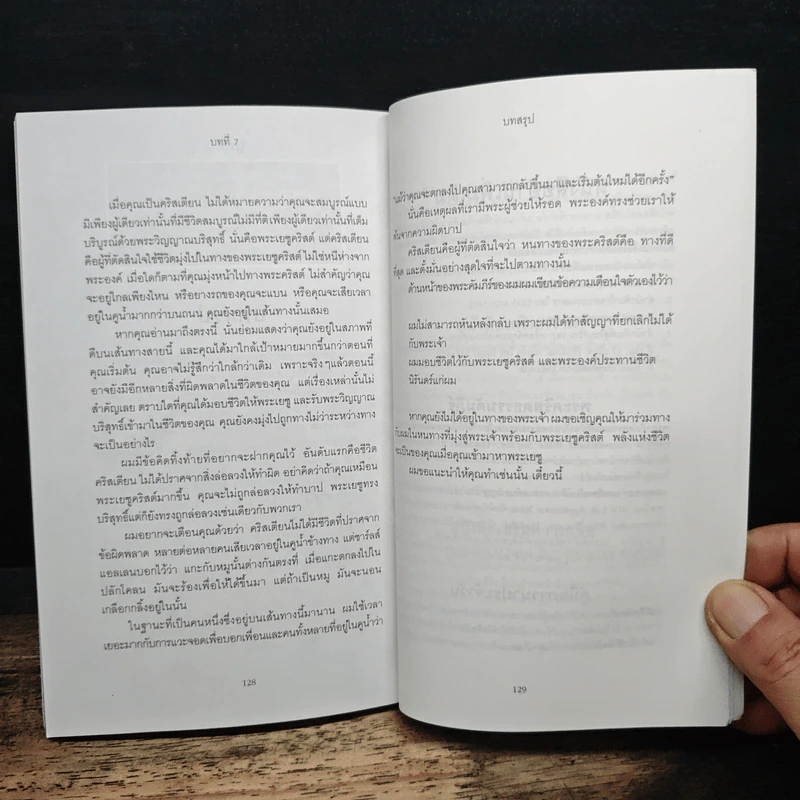 บทที่ 7
เมื่อคุณเป็นคริสเตียน ไม่ได้หมายความว่าคุณจะสมบูรณ์แบบ
มีเพียงผู้เดียวเท่านั้นที่มีชีวิตสมบูรณ์ไม่มีที่ติ เพียงผู้เดียวเท่านั้นที่เต็ม
บริบูรณ์ด้วยพระวิญญาณบริสุทธิ์ นั่นคือพระเยซูคริสต์ แต่คริสเตียน
คือผู้ที่ตัดสินใจใช้ชีวิตมุ่งไปในทางของพระเยซูคริสต์ ไม่ใช่หนีห่างจาก
พระองค์ เมื่อใดก็ตามที่คุณมุ่งหน้าไปทางพระคริสต์ ไม่สำคัญว่าคุณ
จะอยู่ใกลเพียงไหน หรือยางรถของคุณจะแบน หรือคุณจะเสียเวลา
อยู่ในคูน้ำมากกว่าบนถนน คุณยังอยู่ในเส้นทางนั้นเสมอ
หากคุณอ่านมาถึงตรงนี้ นั่นย่อมแสดงว่าคุณยังอยู่ในสภาพที่
ดีบนเส้นทางสายนี้ และคุณได้มาใกล้เป้าหมายมากขึ้นกว่าตอนที่
คุณเริ่มต้น คุณอาจไม่รู้สึกว่าใกล้กว่าเดิม เพราะจริงๆแล้วตอนนี้
อาจยังมีอีกหลายสิ่งที่ผิดพลาดในชีวิตของคุณ แต่เรื่องเหล่านั้นไม่
สำคัญเลย ตราบใดที่คุณได้มอบชีวิตให้พระเยซู และรับพระวิญญาณ
บริสุทธิ์เข้ามาในชีวิตของคุณ คุณยังคงมุ่งไปถูกทางไม่ว่าระหว่างทาง
จะเป็นอย่างไร
ผมมีข้อคิดทิ้งท้ายที่อยากจะฝากคุณไว้ อันดับแรกคือชีวิต
คริสเตียน ไม่ได้ปราศจากสิ่งล่อลวงให้ทำผิด อย่าคิดว่าถ้าคุณเหมือน
พระเยซูคริสต์มากขึ้น คุณจะไม่ถูกล่อลวงให้ทำบาป พระเยซูทรง
บริสุทธิ์แต่ก็ยังทรงถูกล่อลวงเช่นเดียวกับพวกเรา
ผมอยากจะเตือนคุณด้วยว่า คริสเตียนไม่ได้มีชีวิตที่ปราศจาก
ข้อผิดพลาด หลายต่อหลายคนเสียเวลาอยู่ในคูน้ำข้างทาง แต่ชาร์ลส์
แอลเลนบอกไว้ว่า แกะกับหมูนั้นต่างกันตรงที่ เมื่อแกะตกลงไปใน
ปลักโคลน มันจะร้องเพื่อให้ได้ขึ้นมา แต่ถ้าเป็นหมู มันจะนอน
เกลือกกลิ้งอยู่ในนั้น
ในฐานะที่เป็นคนหนึ่งซึ่งอยู่บนเส้นทางนี้มานาน ผมใช้เวลา
เยอะมากกับการแวะจอดเพื่อบอกเพื่อนและคนทั้งหลายที่อยู่ในคูน้ำว่า
128
บทสรุป
"แม้ว่าคุณจะตกลงไป คุณสามารถกลับขึ้นมาและเริ่มต้นใหม่ได้อีกครั้ง"
นั่นคือเหตุผลที่เรามีพระผู้ช่วยให้รอด พระองค์ทรงช่วยเราให้
พ้นจากความผิดบาป
คริสเตียนคือผู้ที่ตัดสินใจว่า หนทางของพระคริสต์คือ ทางที่ดี
ที่สุด และตั้งมั่นอย่างสุดใจที่จะไปตามทางนั้น
ด้านหน้าของพระคัมภีร์ของผมผมเขียนข้อความเตือนใจตัวเองไว้ว่า
ผมไม่สามารถหันหลังกลับ เพราะผมได้ทำสัญญาที่ยกเลิกไม่ได้
กับพระเจ้า
ผมมอบชีวิตไว้กับพระเยซูคริสต์ และพระองค์ประทานชีวิต
นิรันดร์แก่ผม
หากคุณยังไม่ได้อยู่ในทางของพระเจ้า ผมขอเชิญคุณให้มาร่วมทาง
กับผมในหนทางที่มุ่งสู่พระเจ้าพร้อมกับพระเยซูคริสต์ พลังแห่งชีวิต
จะเป็นของคุณเมื่อคุณเข้ามาหาพระเยซู
ผมขอแนะนำให้คุณทำเช่นนั้น เดี๋ยวนี้
129